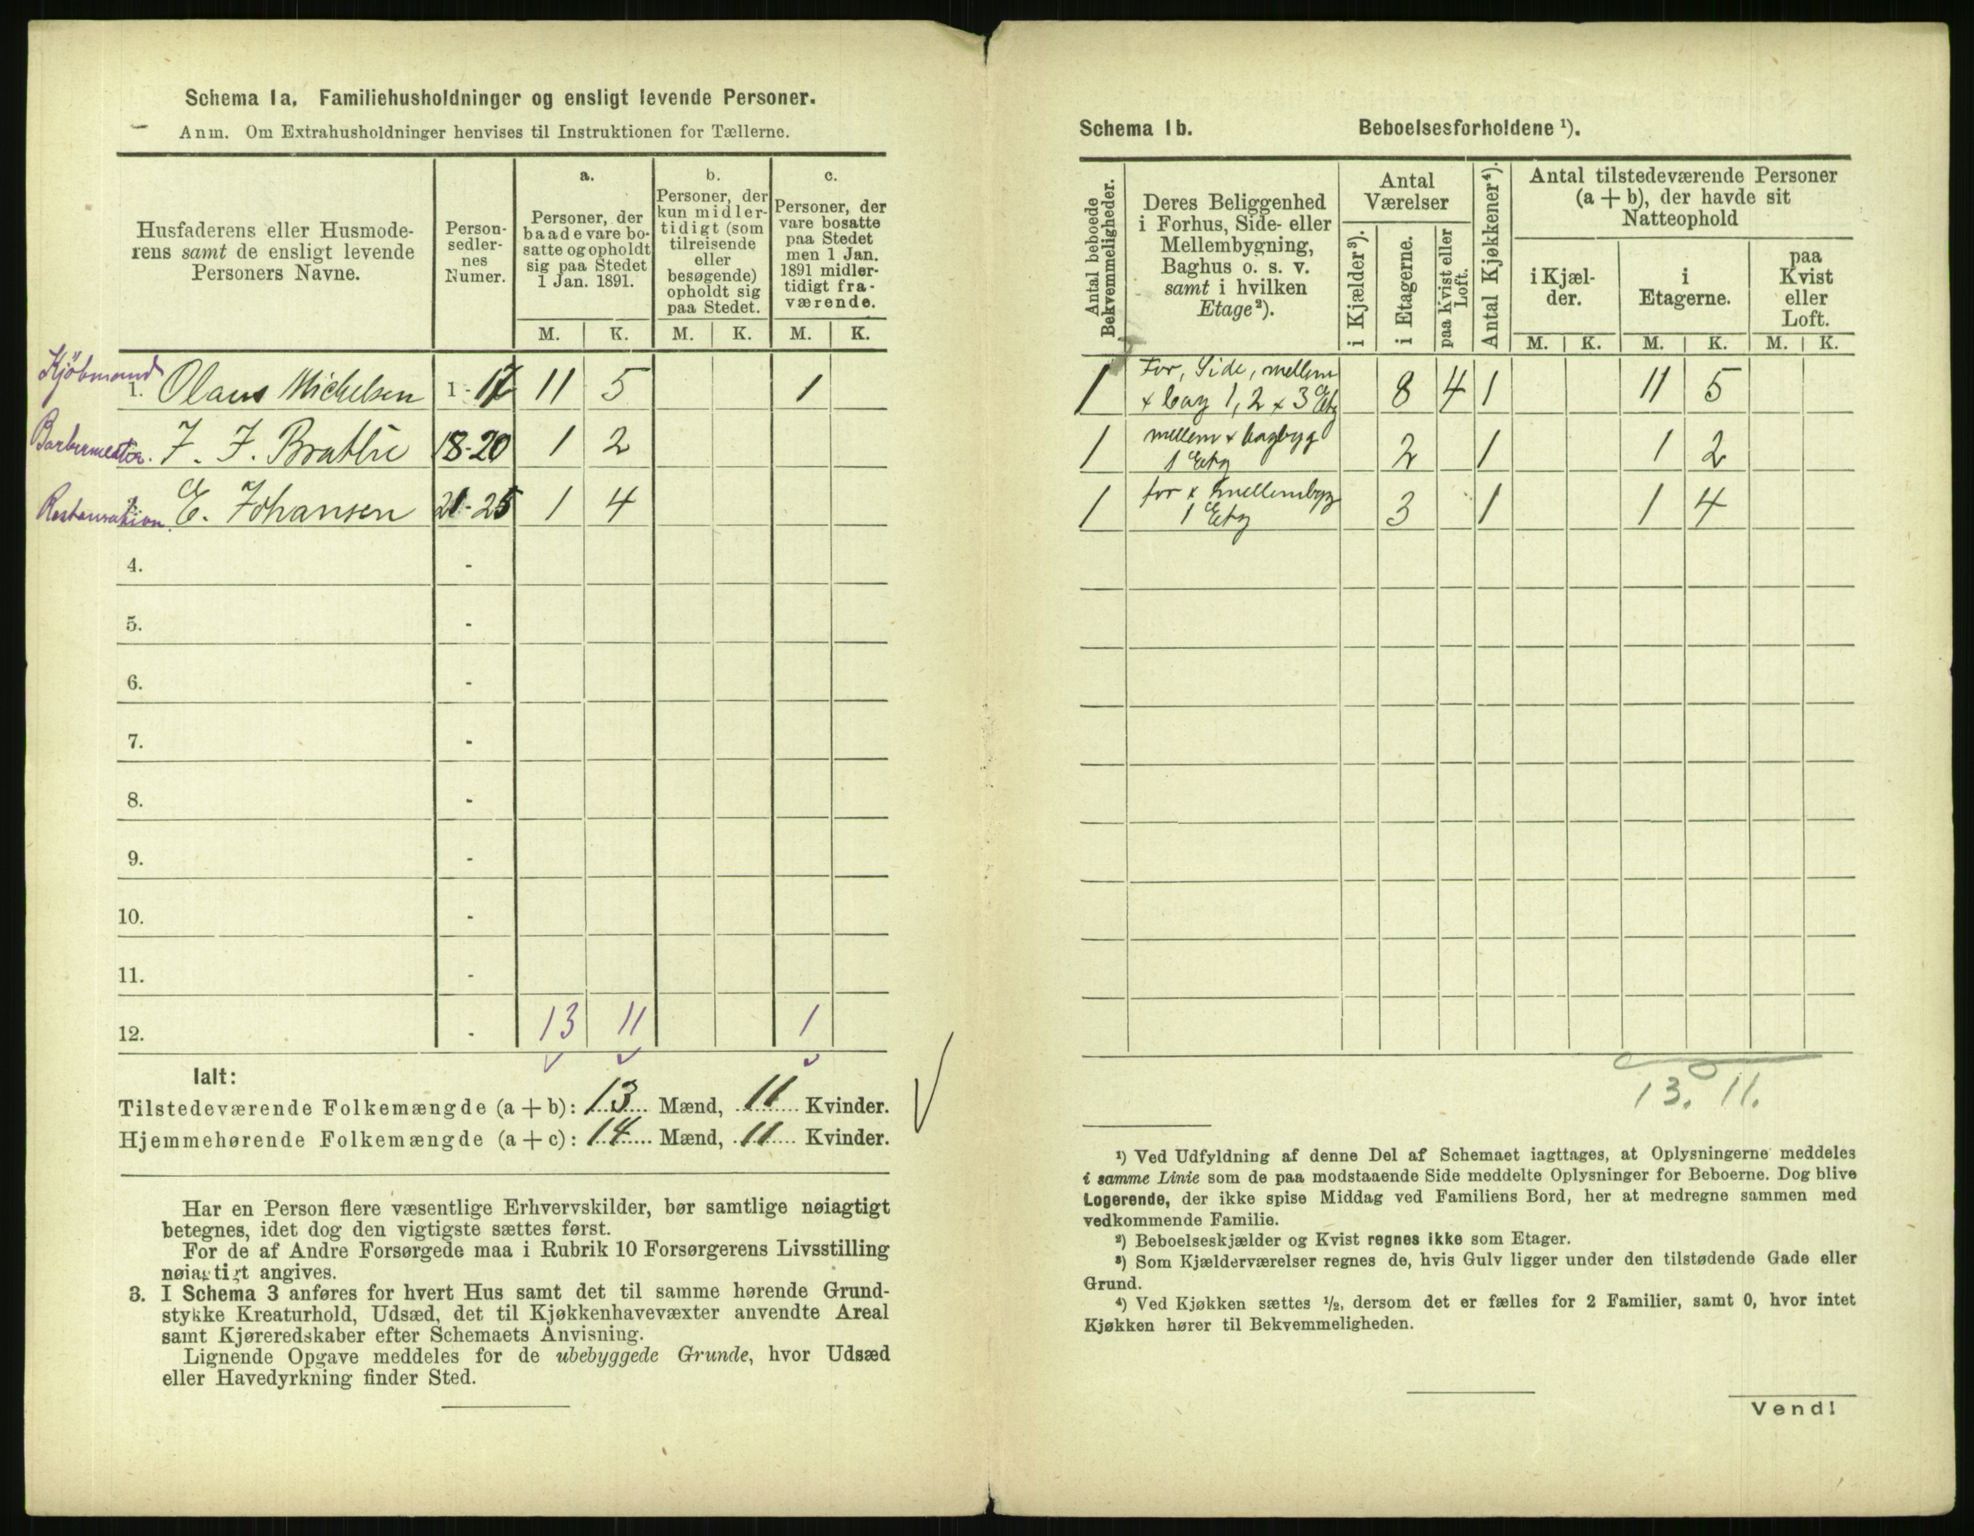 Schema 1a. Familiehusholdninger og ensligt levende Personer.
Anm. Om Extrahusholdninger henvises til Instruktionen for Tællerne.
Husfaderens eller Husmode-
rens samt de ensligt levende
Personers Navne.
Person-
sedler-
nes
Numer.
a.
Personer, der
baade vare bo-
satte og opholdt
sig paa Stedet
1 Jan. 1891.
b.
Personer, der
kun midler-
tidigt (som
tilreisende
eller
besøgende)
opholdt sig
paa Stedet.
c.
Personer, der
vare bosatte
paa Stedet
men 1 Jan.
1891 midler-
tidigt fra-
værende.
M. K. M. K. M. K.
Kjöbmand
1. Olaus Mickelsen 1-17 11 5 1
Barbermester. F. F. Bratlie 18-20 1 2
Restauration E. Johansen 21-25 1 4
4. -
5. -
6. -
7. -
8. -
9. -
10. -
11. -
12. - 13 11 1
Ialt:
Tilstedeværende Folkemængde (a+b): 13 Mænd, 11 Kvinder.
Hjemmehørende Folkemængde (a+c): 14 Mænd, 11 Kvinder.
Har en Person flere væsentlige Erhvervskilder, bør samtlige nøiagtigt
betegnes, idet dog den vigtigste sættes først.
For de af Andre Forsørgede maa i Rubrik 10 Forsørgerens Livsstilling
nøiagtigt angives.
3. I Schema 3 anføres for hvert Hus samt det til samme hørende Grund-
stykke Kreaturhold, Udsæd, det til Kjøkkenhavevæxter anvendte Areal
samt Kjøreredskaber efter Schemaets Anvisning.
Lignende Opgave meddeles for de ubebyggede Grunde, hvor Udsæd
eller Havedyrkning finder Sted.
Schema 1b. Beboelsesforholdene ¹).
Antal beboede
Bekvemmeligheder.
Deres Beliggenhed
i Forhus, Side- eller
Mellembygning,
Baghus o. s. v.
samt i hvilken
Etage²).
Antal
Værelser
i Kjælder³).
i Etagerne.
paa Kvist eller
Loft.
Antal Kjøkkener⁴).
Antal tilstedeværende Personer
(a+b), der havde sit
Natteophold
i Kjæl-
der.
i
Etagerne.
paa
Kvist
eller
Loft.
M. K. M. K. M. K.
1 For, Side, mellem
x bag 1, 2 x 3 Etg 8 4 1 11 5
1 mellem x bagbyg
1 Etg 2 1 1 2
1 for x mellembyg
1 Etg 3 1 1 4
13. 11.
¹) Ved Udfyldning af denne Del af Schemaet iagttages, at Oplysningerne meddeles
i samme Linie som de paa modstaaende Side meddelte Oplysninger for Beboerne. Dog blive
Logerende, der ikke spise Middag ved Familiens Bord, her at medregne sammen med
vedkommende Familie.
²) Beboelseskjælder og Kvist regnes ikke som Etager.
³) Som Kjælderværelser regnes de, hvis Gulv ligger under den tilstødende Gade eller
Grund.
⁴) Ved Kjøkken sættes ¹/₂, dersom det er fælles for 2 Familier, samt 0, hvor intet
Kjøkken hører til Bekvemmeligheden.
Vend!